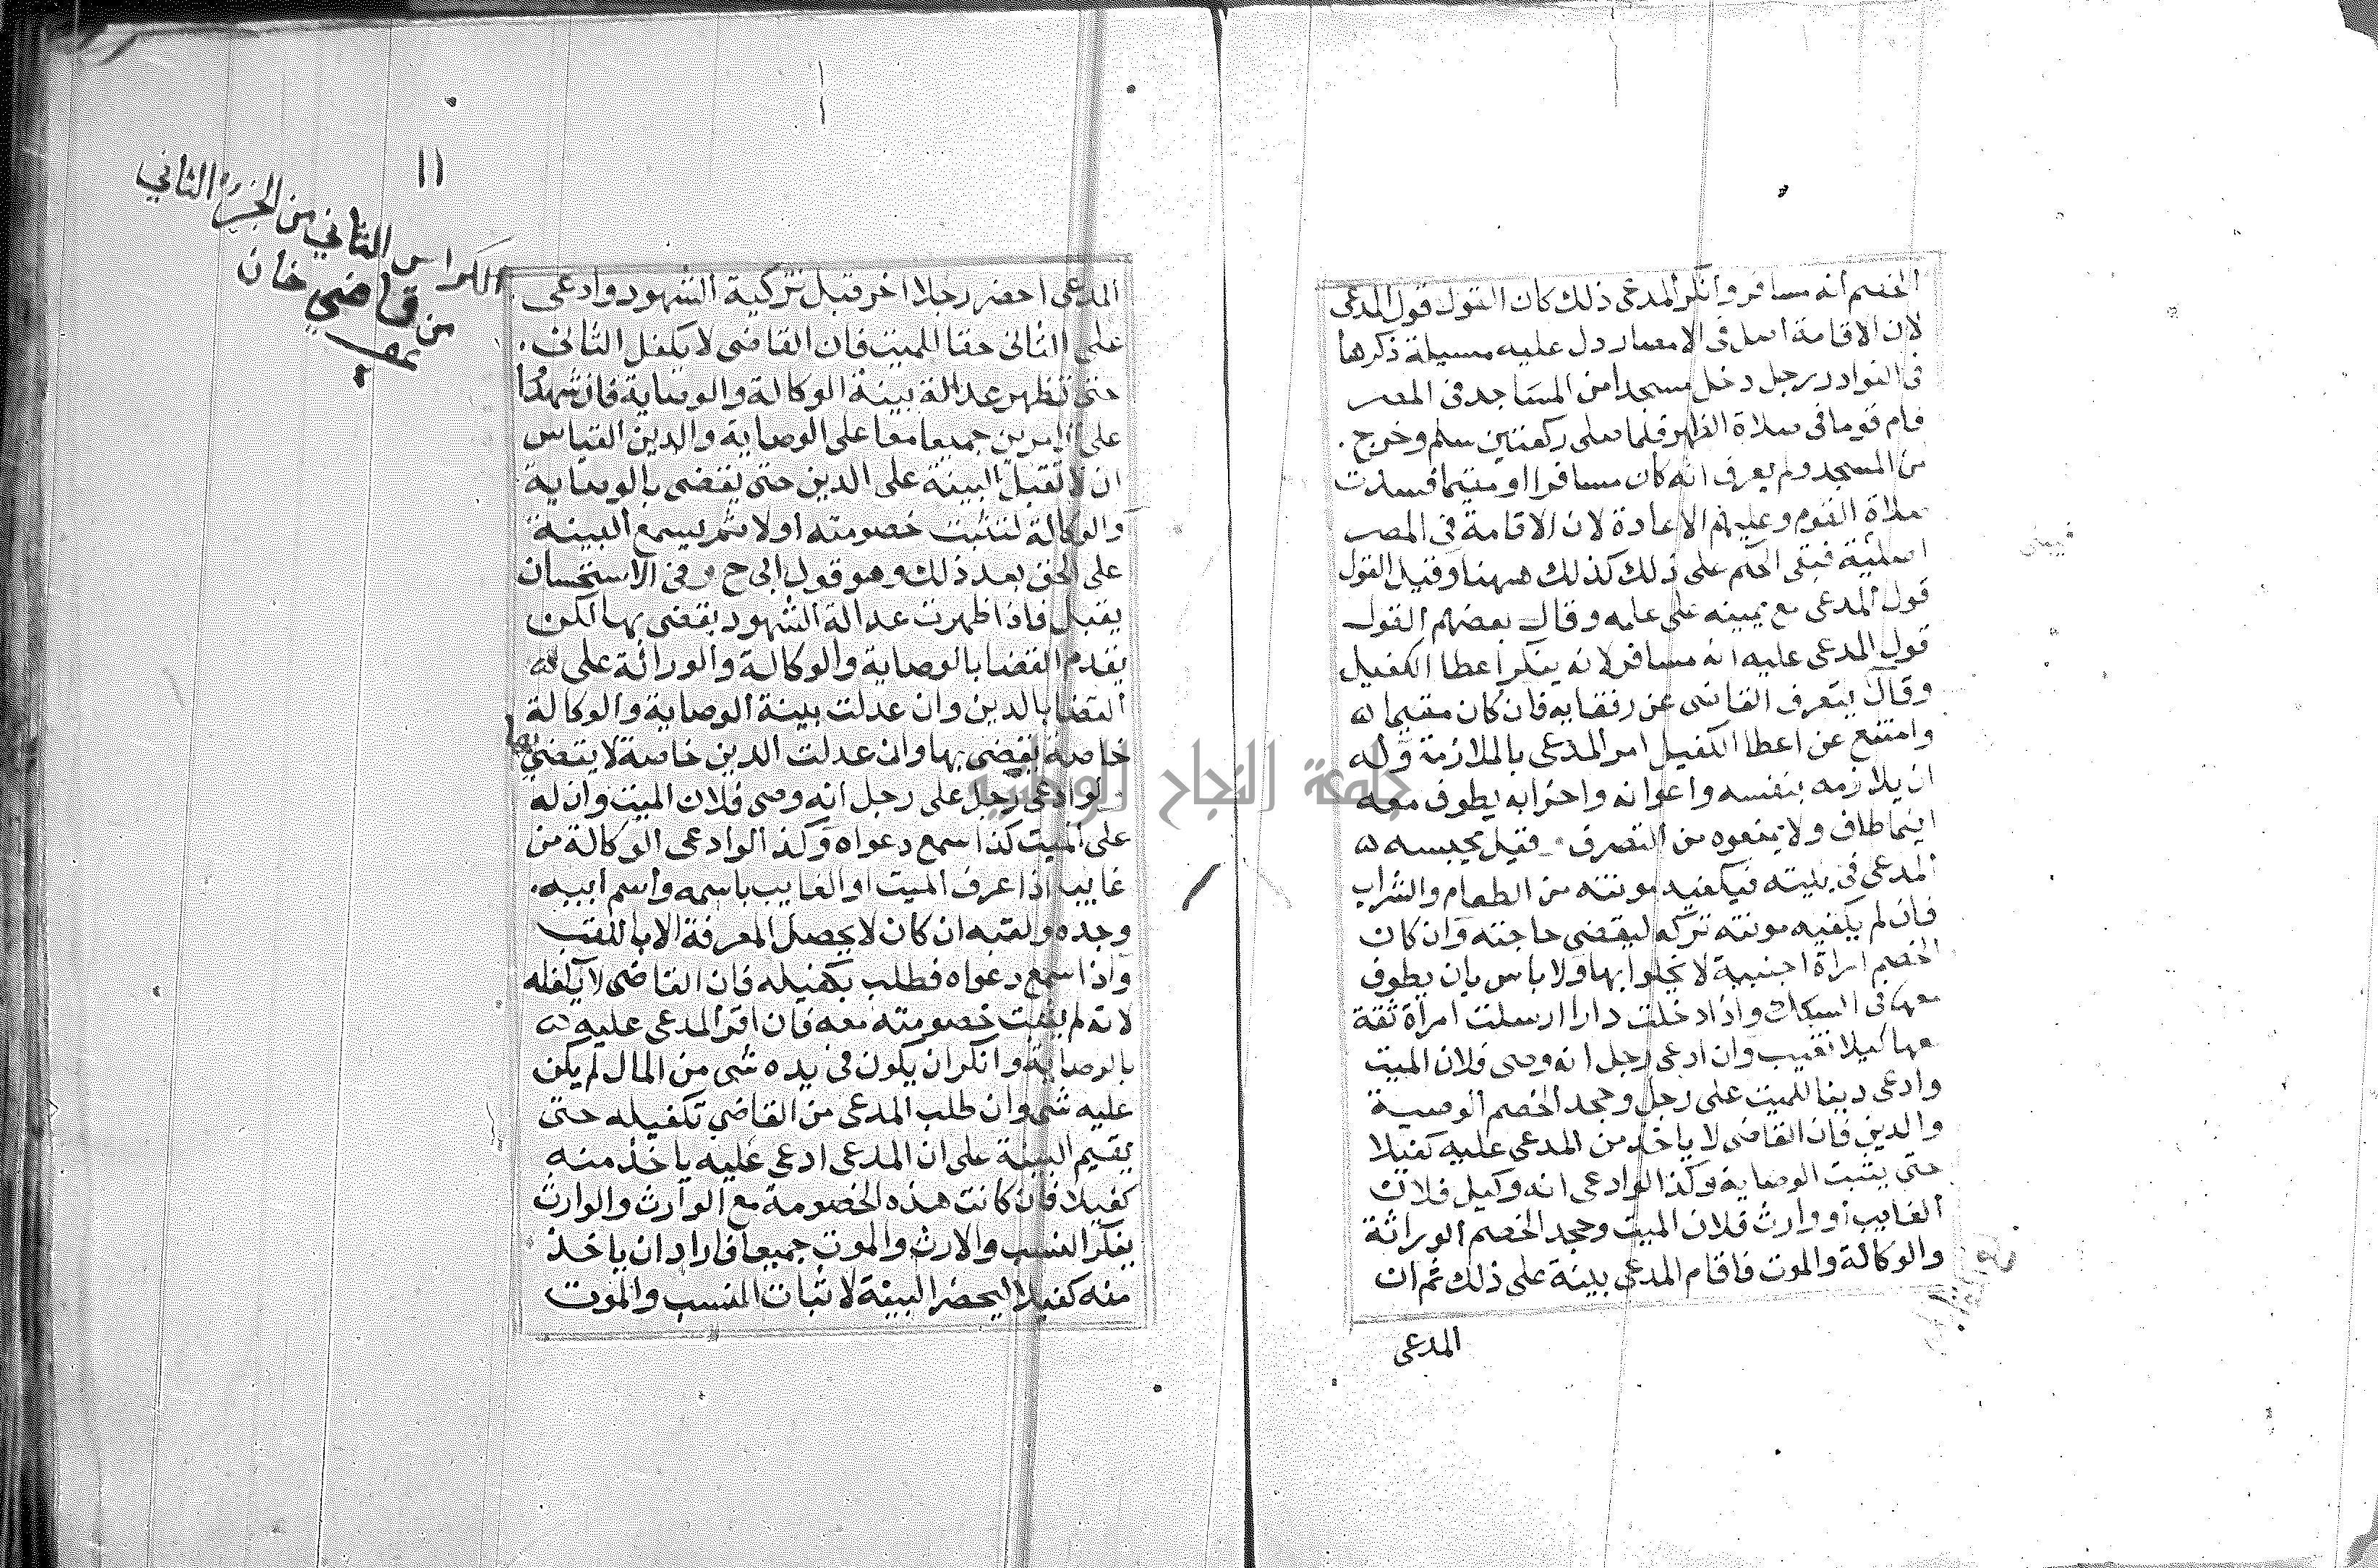 الخصم أنه مسافر وأنكر المدعى ذلك كان القول قول المدعى
لان الاقامة اصل فى الامصار دل عليه مسيلة ذكرها
فى النوادر رجل دخل مسجدا من المساجد فى المصر
فام قوما فى صلاة الظهر فلما صلى ركعتين سلم وخرج .
من المسجد ولم يعرف انه كان مسافرا او مقيما فسدت
صلاة القوم وعليهم الاعادة لان الاقامة فى المصر
اصلية فبقى الحكم على ذلك كذلك ههنا وقيل القول
قول المدعى مع يمينه على علمه وقال بعضهم القول
قول المدعى عليه انه مسافر لانه ينكر اعطا الكفيل
وقال يتعرف القاضى عن رفقايه فان كان مقيما
وامتنع عن اعطا الكفيل امر المدعى بالملازمة وله
ان يلازمه بنفسه واعوانه واحزابه يطوف معه
اينما طاف ولا يمنعوه من التصرف فقيل يحبسه
المدعى فى بيته فيكفيه مونته من الطعام والشراب
فان لم يكفيه مونته تركه ليقضى حاجته وان كان
الخصم امراة اجنبية لا يخلوا بها ولا باس بان يطوف
معها فى السكك واذا دخلت دارا ارسلت امرأة ثقة
معها كيلا تغيب وان ادعى رجل انه وصى فلان الميت
وادعى دينا للميت على رجل وجحد الخصم الوصية
والدين فان القاضى لا ياخذ من المدعى عليه كفيلا
حتى يثبت الوصاية وكذا لو ادعى انه وكيل فلان
الغايب أو وارث فلان الميت وجحد الخصم الوراثة
والوكالة والموت فاقام المدعى بينة على ذلك ثم ان
المدعى
١١
الكراس الثاني من الجزء الثاني
من قاضي خان
المدعى احضر رجلا اخر قبل تزكية الشهود وادعى
على الثانى حقا للميت فان القاضى لا يكفل الثانى .
حتى تظهر عدالة بينة الوكالة والوصاية فان شهدا
على الامرين جميعا معا على الوصاية والدين القياس
ان لا تقبل البينة على الدين حتى يقضى بالوصاية
والوكالة لتثبت خصومته اولا ثم يسمع البينة
على الحق بعد ذلك وهو قول ابى ح وفى الاستحسان
يقبل فاذا ظهرت عدالة الشهود يقضى بها لكن
يقدم القضا بالوصاية والوكالة والوراثة على
القضا بالدين وان عدلت بينة الوصاية والوكالة
خاصة يقضى بها وان عدلت الدين خاصة لا يقضى بها
ولو ادعى رجل على رجل انه وصى فلان الميت وان له
على الميت كذا سمع دعواه وكذا لو ادعى الوكالة من
غايب اذا عرف الميت او الغايب باسمه واسم ابيه .
وجده ولقبه ان كان لا يحصل المعرفة الا باللقب
واذا سمع دعواه فطلب بكفيله فان القاضى لا يكفله
لانه لم يثبت خصومته معه فان اقر المدعى عليه
بالوصاية وانكر ان يكون فى يده شى من المال لم يكن
عليه شى وان طلب المدعى من القاضى تكفيله حتى
يقيم البينة على ان المدعى ادعى عليه ياخذ منه
كفيلا فان كانت هذه الخصومة مع الوارث والوارث
ينكر النسب والارث والموت جميعا فاراد ان ياخذ
منه كفيلا ليحضر البينة لاثبات النسب والموت
جامعة النجاح الوطنية